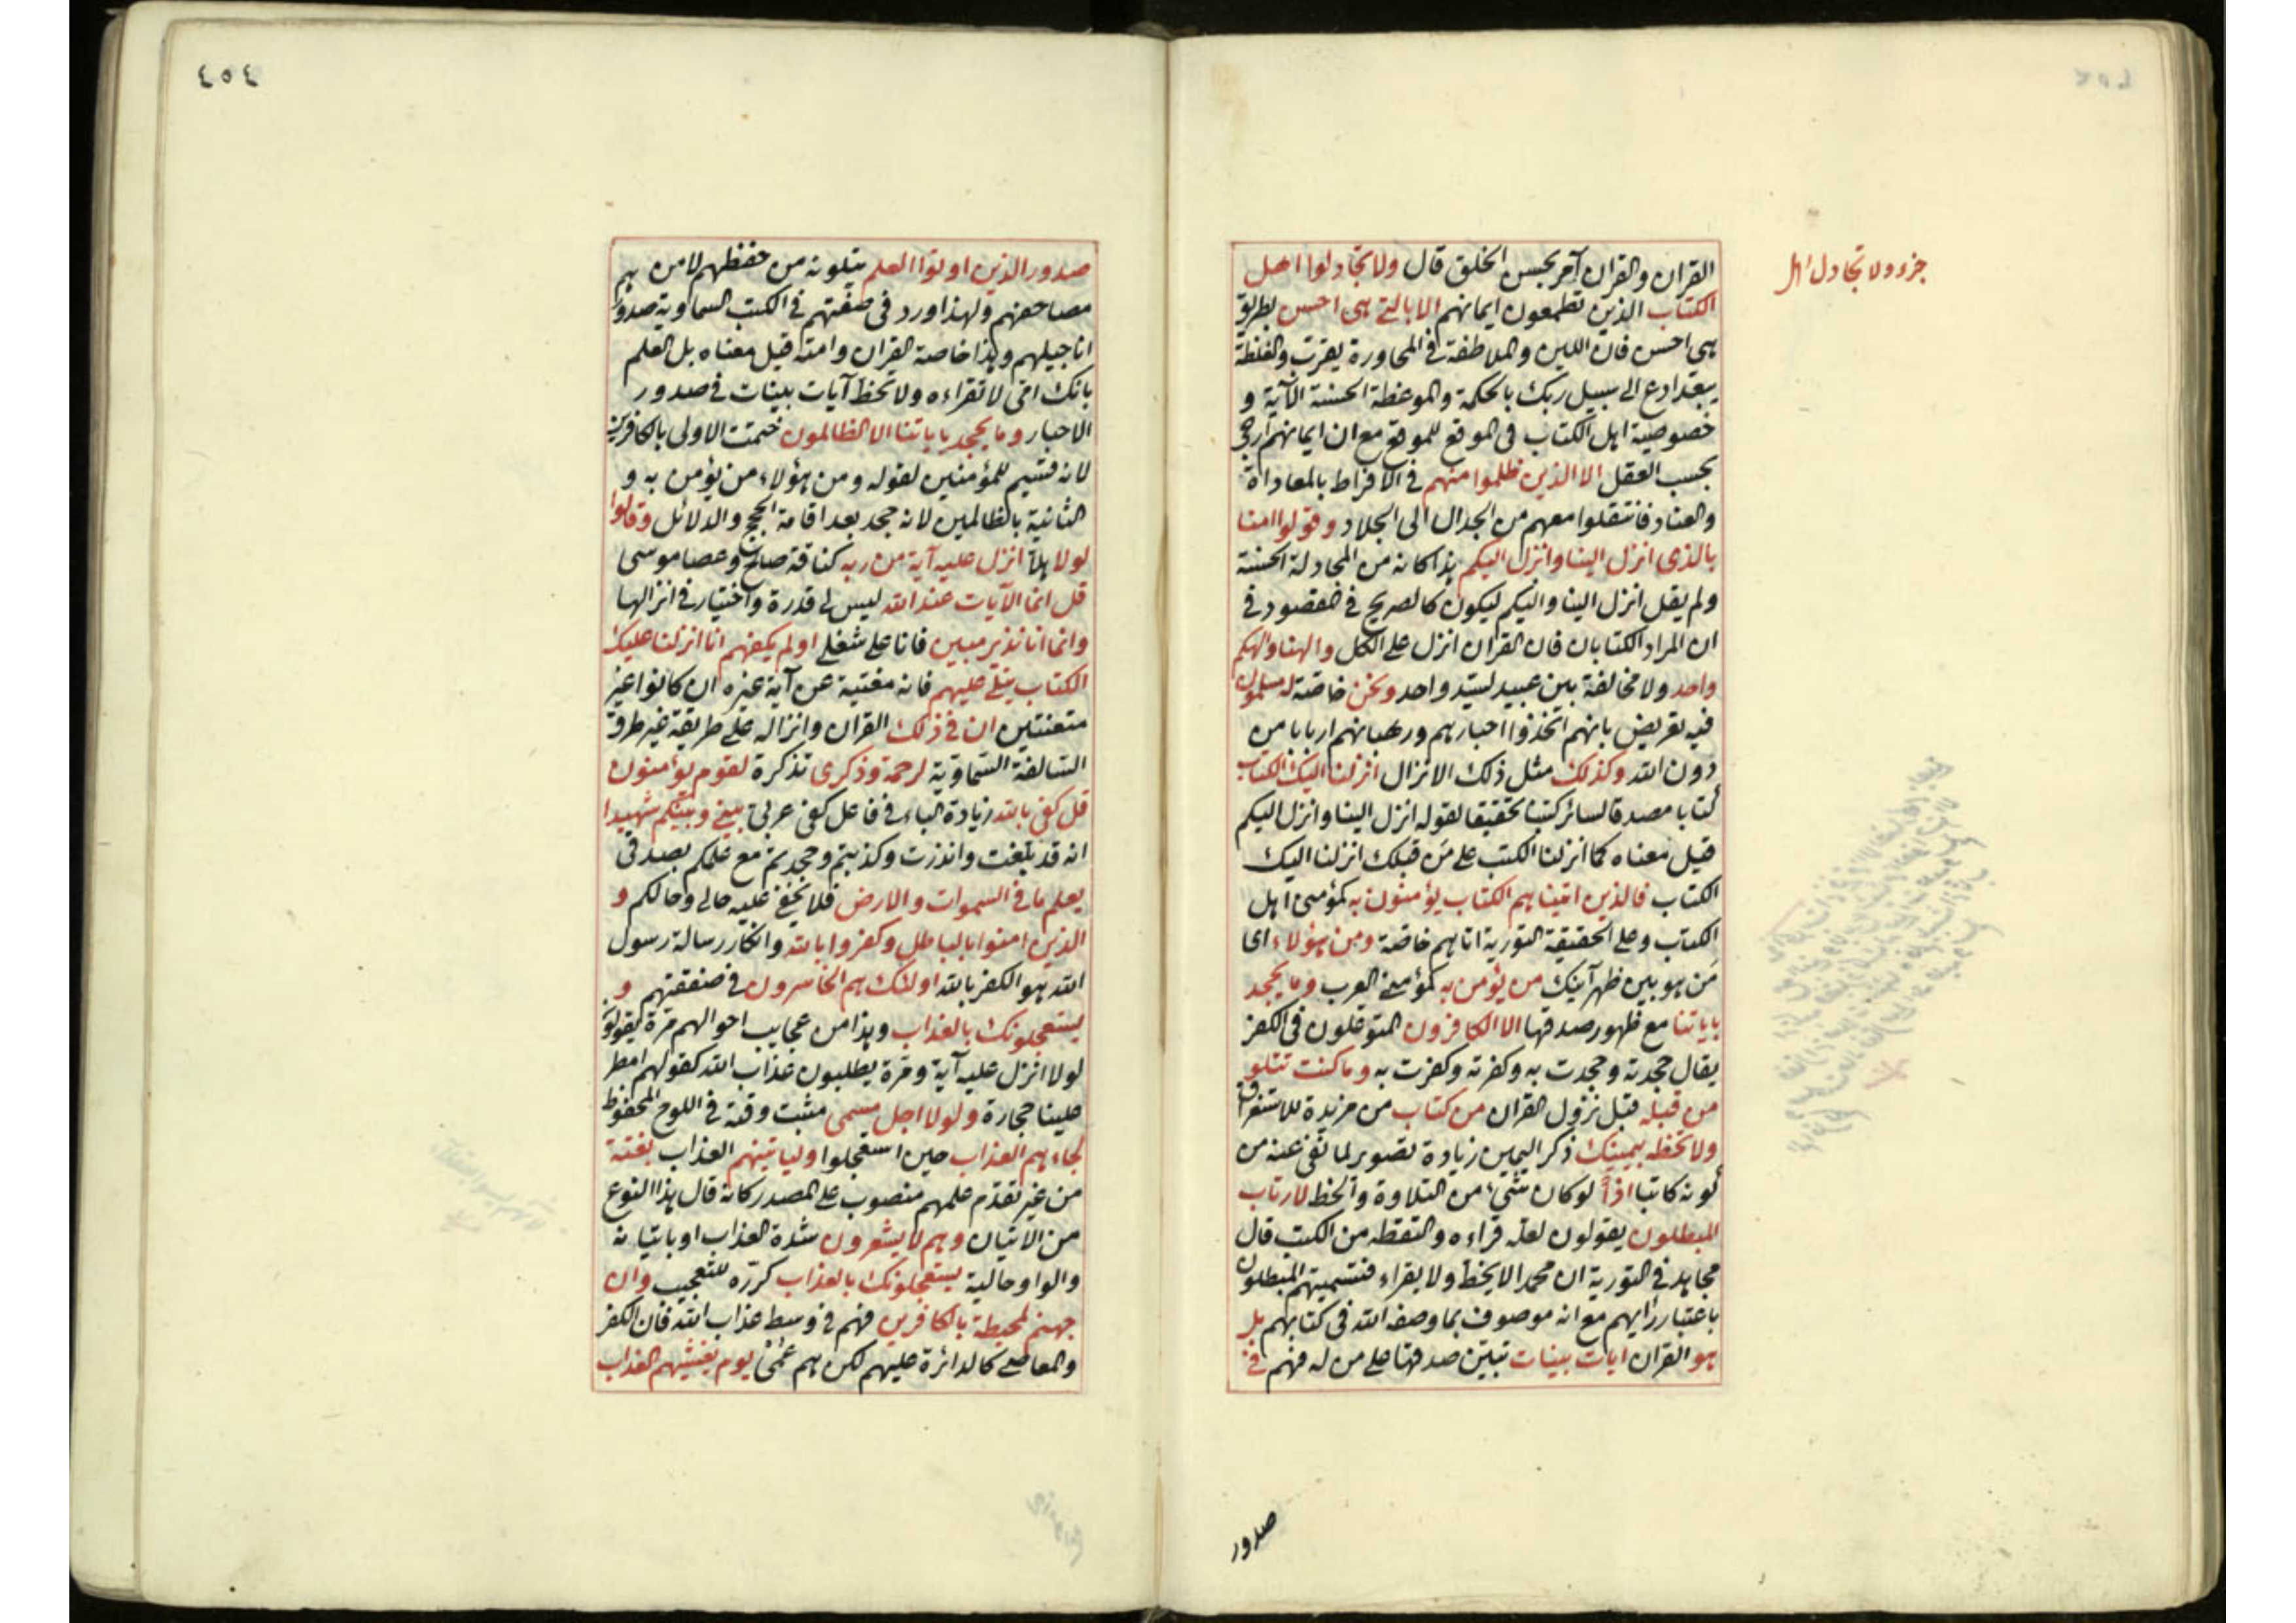 جزء ولا تجادل اهل
القران والقران آمر بحسن الخلق قال ولا تجادلوا اهل
الكتاب الذين تطمعون ايمانهم الا بالتي هي احسن بطريق
هي احسن فان اللين والملاطفة في المحاورة يقرب والغلظة
يبعد ادع الى سبيل ربك بالحكمة والموعظة الحسنة الآية و
خصوصية اهل الكتاب في الموقع للموقع مع ان ايمانهم ارجى
بحسب العقل الا الذين ظلموا منهم في الافراط بالمعاداة
والعناد فانتقلوا معهم من الجدال الى الجلاد وقولوا امنا
بالذي انزل الينا وانزل اليكم هذا كانه من المجادلة الحسنة
ولم يقل انزل الينا واليكم ليكون كالصريح في المقصود في
ان المراد الكتابان فان القران انزل على الكل والهنا والهكم
واحد ولا مخالفة بين عبيد لسيد واحد ونحن خاصة له مسلمون
فيه تعريض بانهم اتخذوا احبارهم ورهبانهم اربابا من
دون الله وكذلك مثل ذلك الانزال انزلنا اليك الكتاب
كتابا مصدقا لسائر كتبنا تحقيقا لقوله انزل الينا وانزل اليكم
قيل معناه كما انزلنا الكتب على من قبلك انزلنا اليك
الكتاب فالذين اتيناهم الكتاب يؤمنون به كمؤمني اهل
الكتاب وعلى الحقيقة التورية اتاهم خاصة ومن هؤلاء اى
من هو بين ظهرآنيك من يؤمن به كمؤمني العرب وما يجحد
باياتنا مع ظهور صدقها الا الكافرون المتوغلون في الكفر
يقال جحدته وجحدت به وكفرته وكفرت به وما كنت تتلو
من قبله قبل نزول القران من كتاب من مزيدة للاستغراق
ولا تخطه بيمينك ذكر اليمين زيادة تصوير لما نفى عنه من
كونه كاتبا اذاً لو كان شيء من التلاوة والخط لارتاب
المبطلون يقولون لعله قراءه والتقطه من الكتب قال
مجاهد في التورية ان محمدا لا يخط ولا يقراء فتسميتهم المبطلون
باعتبار رأيهم مع انه موصوف بما وصفه الله في كتابهم بل
هو القران ايات بينات تبين صدقها على من له فهم في
صدور
٤٥٤
صدور الذين اوتوا العلم يتلونه من حفظهم لا من
مصاحفهم ولهذا ورد في صفتهم في الكتب السماوية صدورهم
اناجيلهم وهذا خاصة القران وامته قيل معناه بل العلم
بانك امّى لا تقراءه ولا تخط آيات بينات في صدور
الاحبار وما يجحد باياتنا الا الظالمون ختمت الاولى بالكافرين
لانه قسيم للمؤمنين لقوله ومن هؤلاء من يؤمن به و
الثانية بالظالمين لانه جحد بعد اقامة الحجج والدلائل وقالوا
لولا هلّا انزل عليه آية من ربه كناقة صالح وعصا موسى
قل انما الآيات عند الله ليس لي قدرة واختيار في انزالها
وانما انا نذير مبين فانا على شغلي اولم يكفهم انا انزلنا عليك
الكتاب يتلى عليهم فانه مغنية عن آية غيره ان كانوا غير
متعنتين ان في ذلك القران وانزاله على طريقة غير طرق
السالفة السماوية لرحمة وذكرى تذكرة لقوم يؤمنون
قل كفى بالله زيادة الباء في فاعل كفى عربى بيني وبينكم شهيدا
انه قد بلغت وانذرت وكذبتم وجحدتم مع علمكم بصدقي
يعلم ما في السموات والارض فلا يخفى عليه حالي وحالكم و
الذين امنوا بالباطل وكفروا بالله وانكار رسالة رسول
الله هو الكفر بالله اولئك هم الخاسرون في صفقتهم و
يستعجلونك بالعذاب وهذا من عجايب احوالهم مرة يقولون
لولا انزل عليه آية ومرة يطلبون عذاب الله كقولهم امطر
علينا حجارة ولولا اجل مسمى مثبت وقته في اللوح المحفوظ
لجاءهم العذاب حين استعجلوا ولياتينهم العذاب بغتة
من غير تقدّم علمهم منصوب على المصدر كانه قال هذا النوع
من الاتيان وهم لا يشعرون شدة العذاب او باتيانه
والواو حالية يستعجلونك بالعذاب كرّره للتعجيب وان
جهنم لمحيطة بالكافرين فهم في وسط عذاب الله فان الكفر
والمعاصي كالدائرة عليهم لكن هم عُمْىٌ يوم يغشيهم العذاب